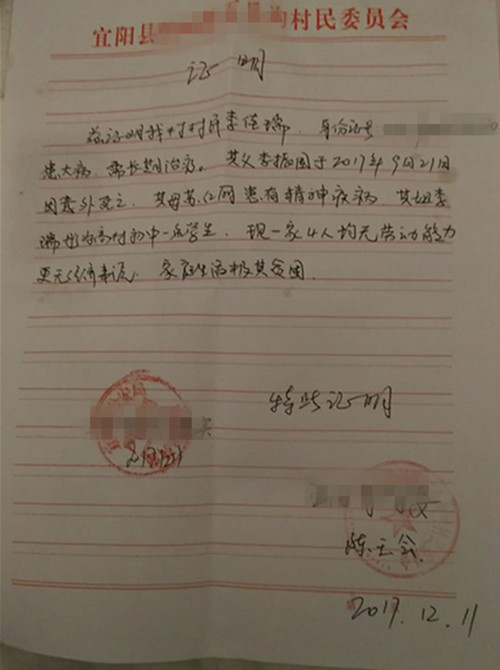 宜阳县 村民委员会
证明
兹证明我村村民李佳瑞，身份证号
患大病，需长期治疗。其父李振国于2017年9月21日
因意外死亡，其母苏红网患有精神疾病，其姐李
瑞 为高村初中一名学生，现一家4人均无劳动能力
更无经济来源，家庭生活极其贫困.
特此证明
陈玉会
2017.12.11